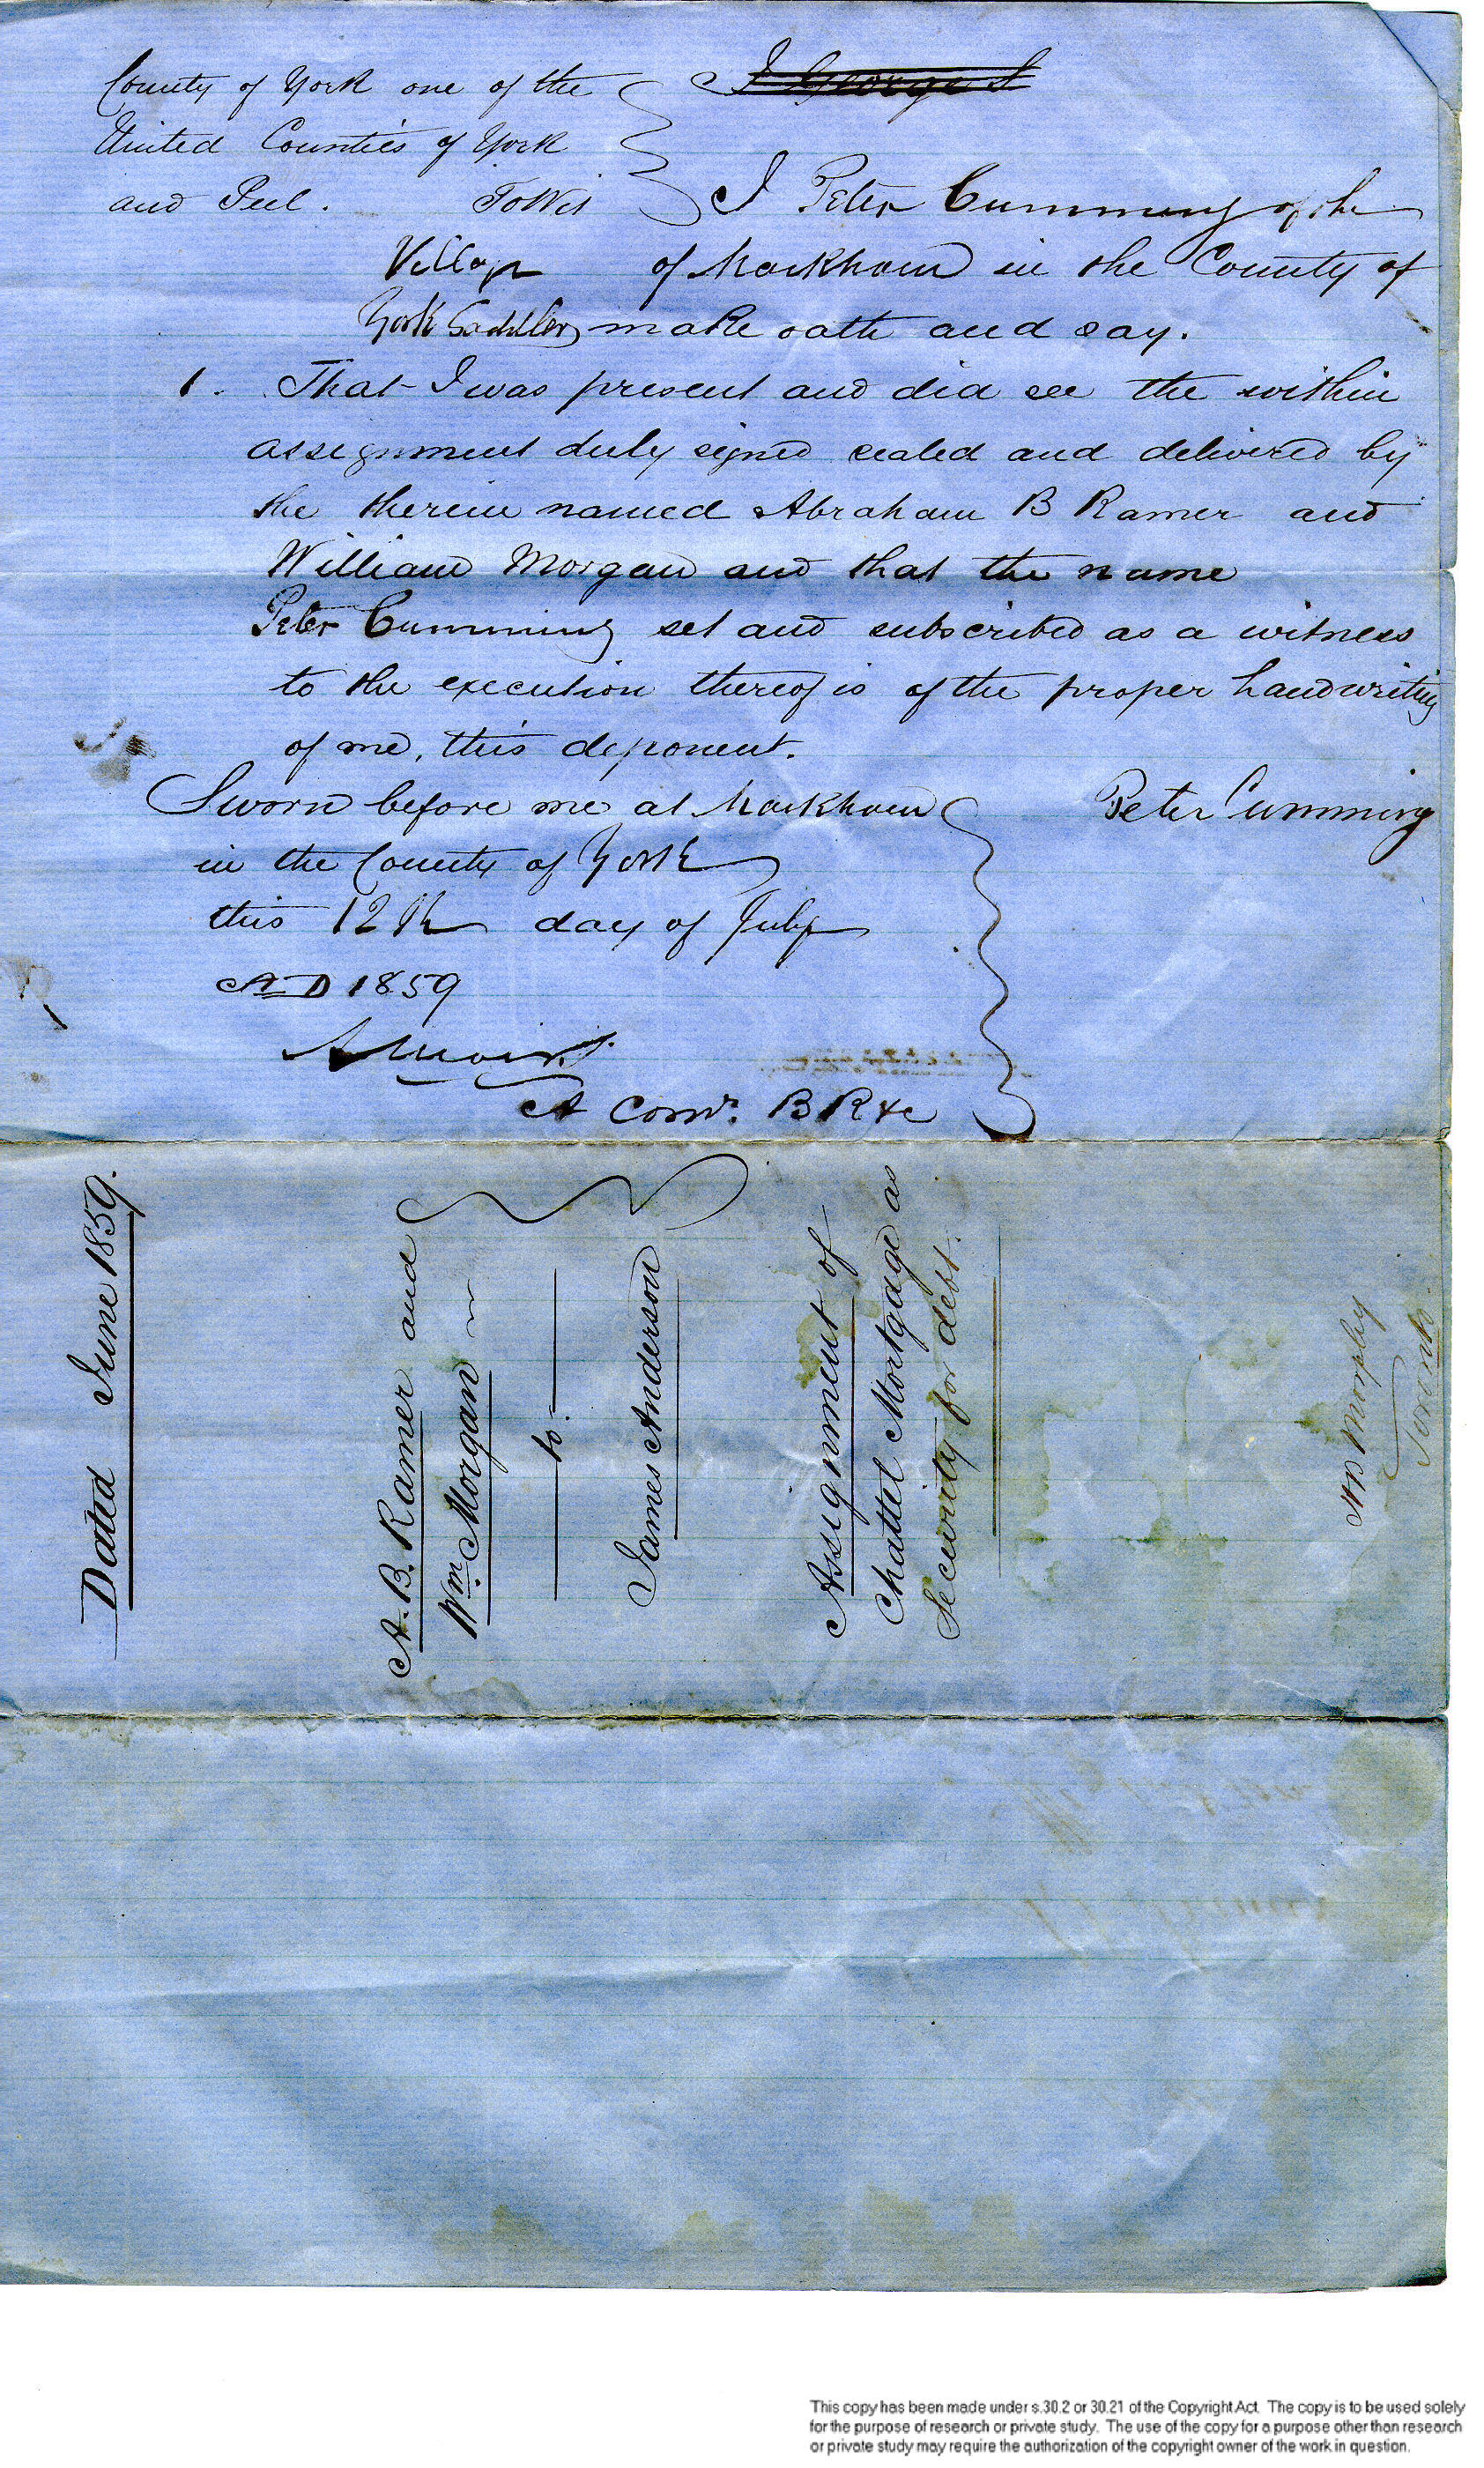 County of York one of the
United Counties of York
and Peel. To Wit
I George S
I Peter Cumming of the
Village of Markham in the County of
York Saddler make oath and say.
1. That I was present and did see the within
assignment duly signed sealed and delivered by
the therein named Abraham B Ramer and
William Morgan and that the name
Peter Cumming set and subscribed as a witness
to the execution thereof is of the proper handwriting
of me, this deponent.
Sworn before me at Markham
in the County of York
this 12th day of July
AD 1859
Peter Cumming
A Comr. B R &c
Dated June 1859.
A. B. Ramer and
Wm. Morgan
to
James Anderson
Assignment of
Chattel Mortgage as
Security for debt.
Murphy
Toronto
This copy has been made under s.30.2 or 30.21 of the Copyright Act. The copy is to be used solely
for the purpose of research or private study. The use of the copy for a purpose other than research
or private study may require the authorization of the copyright owner of the work in question.